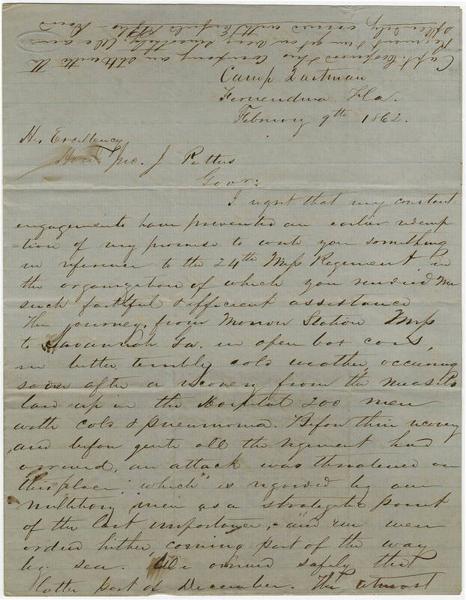 Camp Eastman
Fernandina Fla.
February 9th 1862.
His Excellency
Jno. J. Pettus
Govr:
I regret that my constant
engagements have prevented an earlier redemp
tion of my promise to write you something
in reference to the 24th Miss Regiment, in
the organization of which you rendered me
such faithful & efficient assistance.
The journey from Monroe Station Miss
to Savannah Ga. in open box cars,
in bitter terribly cold weather, occurring
soon after a recovery from the measles
laid up in the Hospital 200 men
with colds & pneumonia. Before their recovery
and before quite all the regiment had
arrived, an attack was threatened on
this place, which is regarded by our
military men as a strategic point
of the last importance, and we were
ordered hither, coming part of the way
by sea. We arrived safely the
latter part of December. The utmost